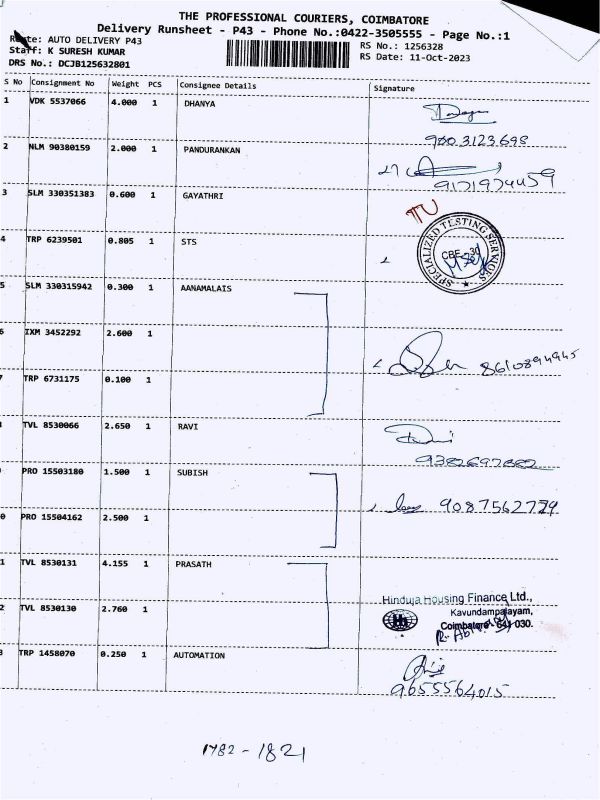 THE PROFESSIONAL COURIERS, COIMBATORE
Delivery Runsheet - P43 - Phone No.:0422-3505555 - Page No.:1
Route: AUTO DELIVERY P43
Staff: K SURESH KUMAR
DRS No.: DCJB125632801
RS No.: 1256328
RS Date: 11-Oct-2023
S No Consignment No Weight PCS Consignee Details Signature
1 VDK 5537066 4.000 1 DHANYA
9003123698
2 NLM 90380159 2.000 1 PANDURANKAN
9171974459
3 SLM 330351383 0.600 1 GAYATHRI
TU
4 TRP 6239501 0.805 1 STS
SPECIALIZED TESTING SERVICES
CBE - 30
5 SLM 330315942 0.300 1 AANAMALAIS
6 IXM 3452292 2.600 1
8610894945
7 TRP 6731175 0.100 1
TVL 8530066 2.650 1 RAVI
9382697882
PRO 15503180 1.500 1 SUBISH
9087562779
0 PRO 15504162 2.500 1
1 TVL 8530131 4.155 1 PRASATH
2 TVL 8530130 2.760 1
Hinduja Housing Finance Ltd.,
Kavundampalayam,
Coimbatore - 641 030.
3 TRP 1458070 0.250 1 AUTOMATION
9655564015
1782 - 1821